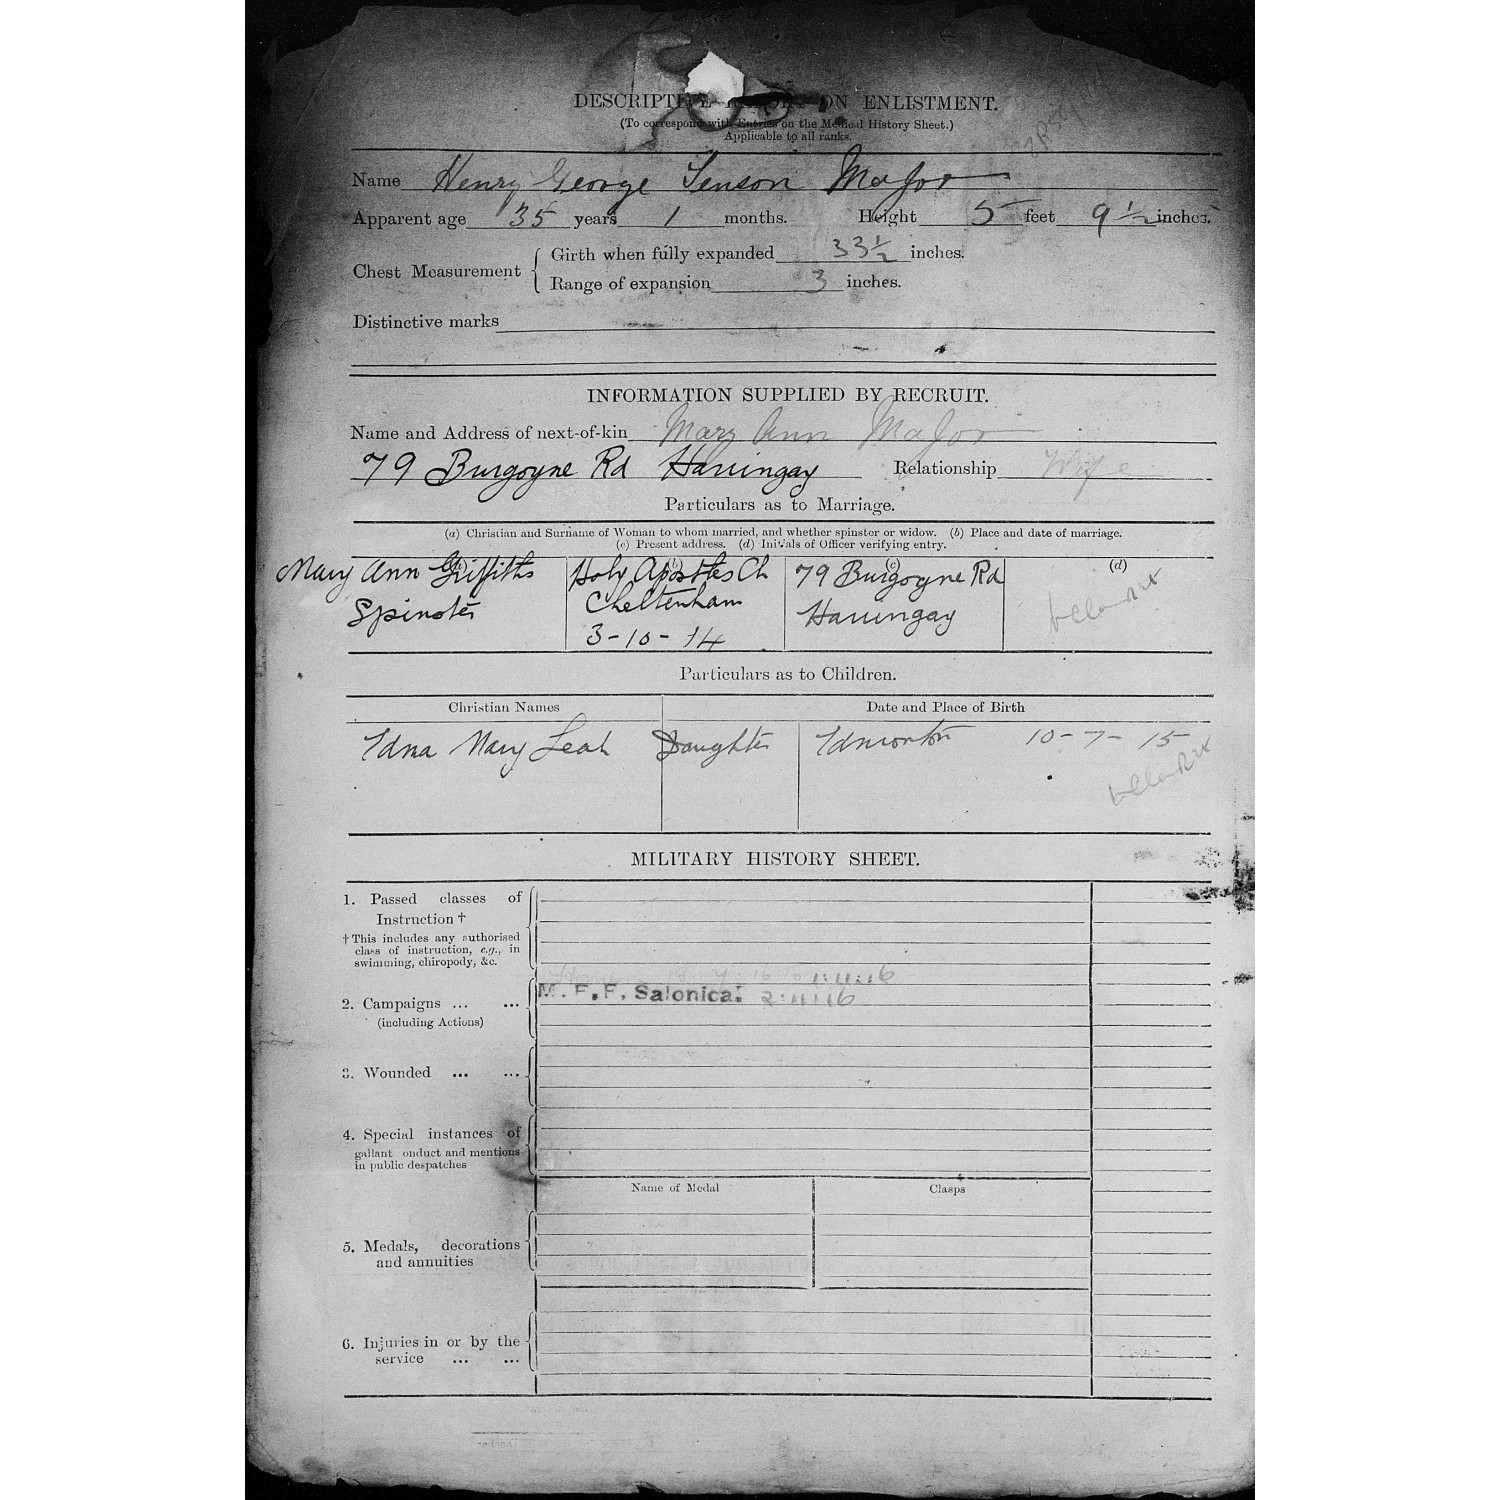 DESCRIPTIVE REPORT ON ENLISTMENT.
(To correspond with Entries on the Medical History Sheet.)
Applicable to all ranks.
Name Henry George Major
Apparent age 35 years 1 months. Height 5 feet 9 ½ inches.
Chest Measurement
Girth when fully expanded 33½ inches.
Range of expansion 3 inches.
Distinctive marks
INFORMATION SUPPLIED BY RECRUIT.
Name and Address of next-of-kin Mary Ann Major
79 Burgoyne Rd Harringay Relationship Wife
Particulars as to Marriage.
(a) Christian and Surname of Woman to whom married, and whether spinster or widow. (b) Place and date of marriage.
(c) Present address. (d) Initials of Officer verifying entry.
(a) (b) (c) (d)
Mary Ann Griffiths Holy Apostles Ch 79 Burgoyne Rd
Spinster Cheltenham Harringay
3-10-14
Particulars as to Children.
Christian Names Date and Place of Birth
Edna Mary Leah Daughter Edmonton 10-7-15
MILITARY HISTORY SHEET.
1. Passed classes of
Instruction †
† This includes any authorised
class of instruction, e.g., in
swimming, chiropody, &c.
Home 1:11:16
M.E.F. Salonica. 2:11:16
2. Campaigns ... ...
(including Actions)
3. Wounded ... ...
4. Special instances of
gallant onduct and mentions
in public despatches
Name of Medal Clasps
5. Medals, decorations
and annuities
6. Injuries in or by the
service ... ...